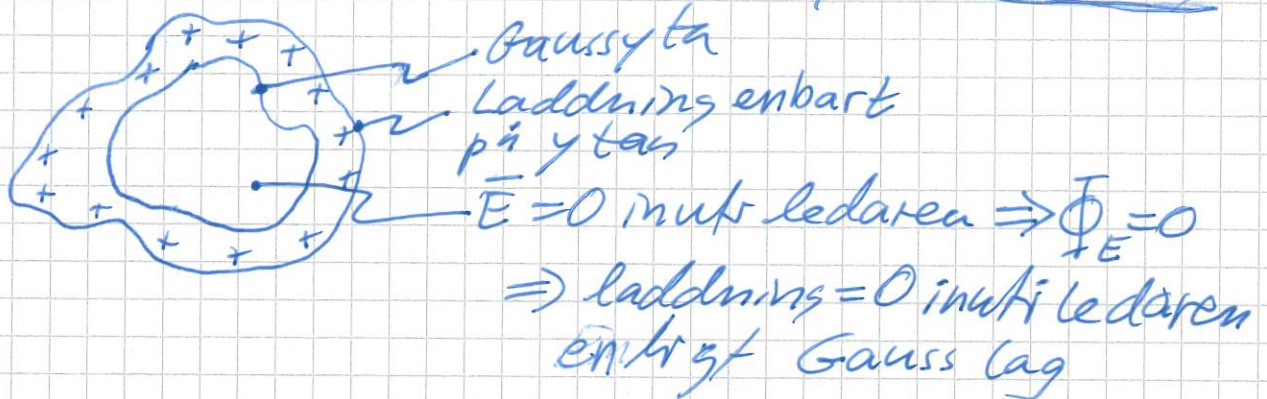 Gaussyta
Laddning enbart
på ytan
Ē = 0 inuti ledaren ⇒ Φ_E = 0
⇒ laddning = 0 inuti ledaren
enligt Gauss lag